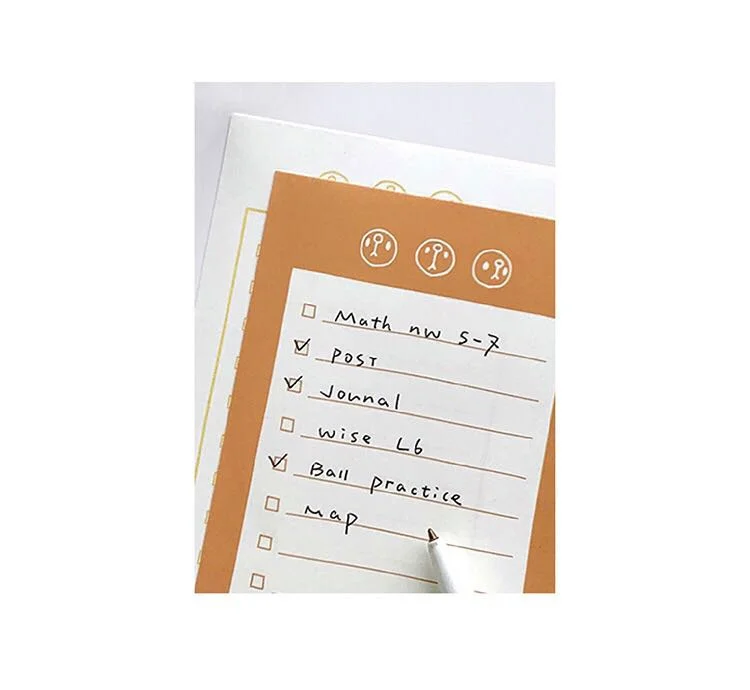 Math nw 5-7
POST
Jounal
wise L6
Ball practice
Map